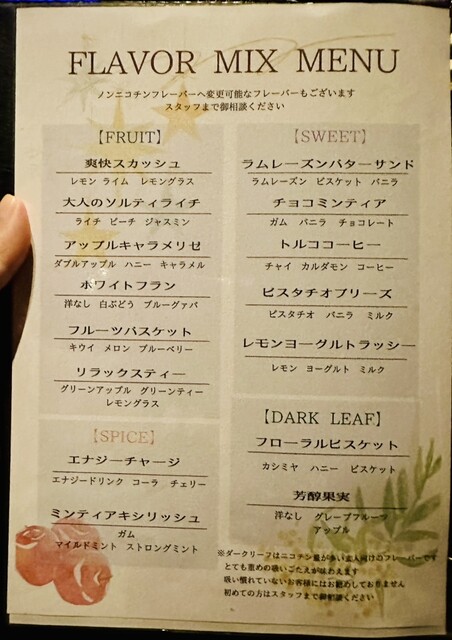 FLAVOR MIX MENU
ノンニコチンフレーバーへ変更可能なフレーバーもございます
スタッフまで御相談ください
【FRUIT】
爽快スカッシュ
レモン ライム レモングラス
大人のソルティライチ
ライチ ピーチ ジャスミン
アップルキャラメリゼ
ダブルアップル ハニー キャラメル
ホワイトフラン
洋なし 白ぶどう ブルーグァバ
フルーツバスケット
キウイ メロン ブルーベリー
リラックスティー
グリーンアップル グリーンティー
レモングラス
【SPICE】
エナジーチャージ
エナジードリンク コーラ チェリー
ミンティアキシリッシュ
ガム
マイルドミント ストロングミント
【SWEET】
ラムレーズンバターサンド
ラムレーズン ビスケット バニラ
チョコミンティア
ガム バニラ チョコレート
トルココーヒー
チャイ カルダモン コーヒー
ピスタチオブリーズ
ピスタチオ バニラ ミルク
レモンヨーグルトラッシー
レモン ヨーグルト ミルク
【DARK LEAF】
フローラルビスケット
カシミヤ ハニー ビスケット
芳醇果実
洋なし グレープフルーツ
アップル
※ダークリーフはニコチン量が多い玄人向けのフレーバーです
とても重めの吸いごたえが味わえます
吸い慣れていないお客様にはお勧めしておりません
初めての方はスタッフまで御相談ください